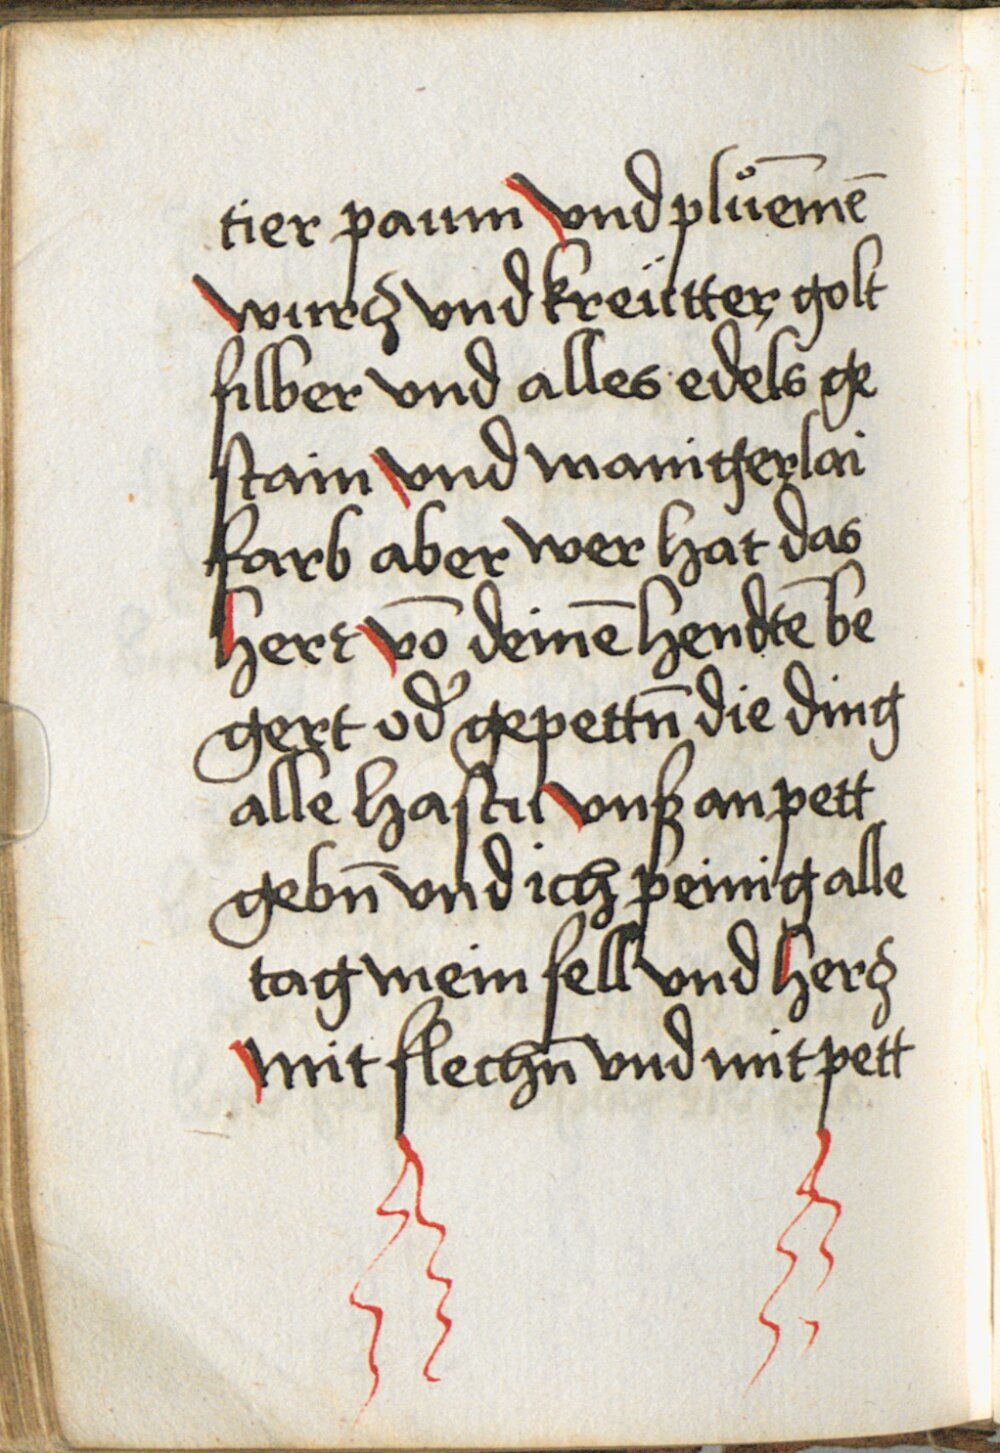 tier paum vnd plůem̄ē
wurcz vnd kreütter golt
silber vnd alles edels ge
stain vnd manigerlai
farb aber wer hat das
hertz vō deinē hendtē be
gert od̛ gepettn̄ die ding
alle hastu vnß an pett
gebn̄ vnd ich peinig alle
tag mein sell vnd hercz
mit flechn̄ vnd mit pett